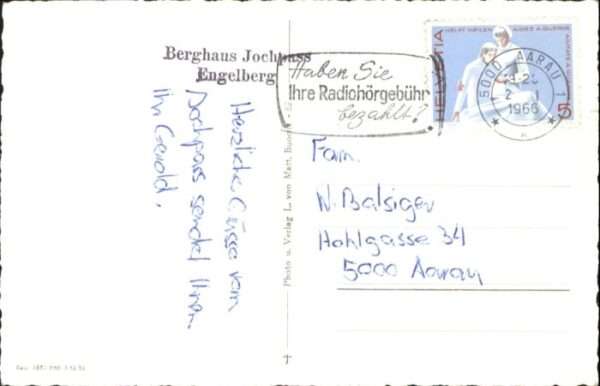 Berghaus Jochpass
Engelberg
Herzliche Grüsse vom
Jochpass sendet Ihnen
Ihr Gerold.
Photo u. Verlag L. von Matt, Buochs
HELVETIA
5
5000 AARAU 1
2. 1
1966
Haben Sie
Ihre Radiohörgebühr
bezahlt?
Fam.
W. Balsiger
Hohlgasse 34
5000 Aarau